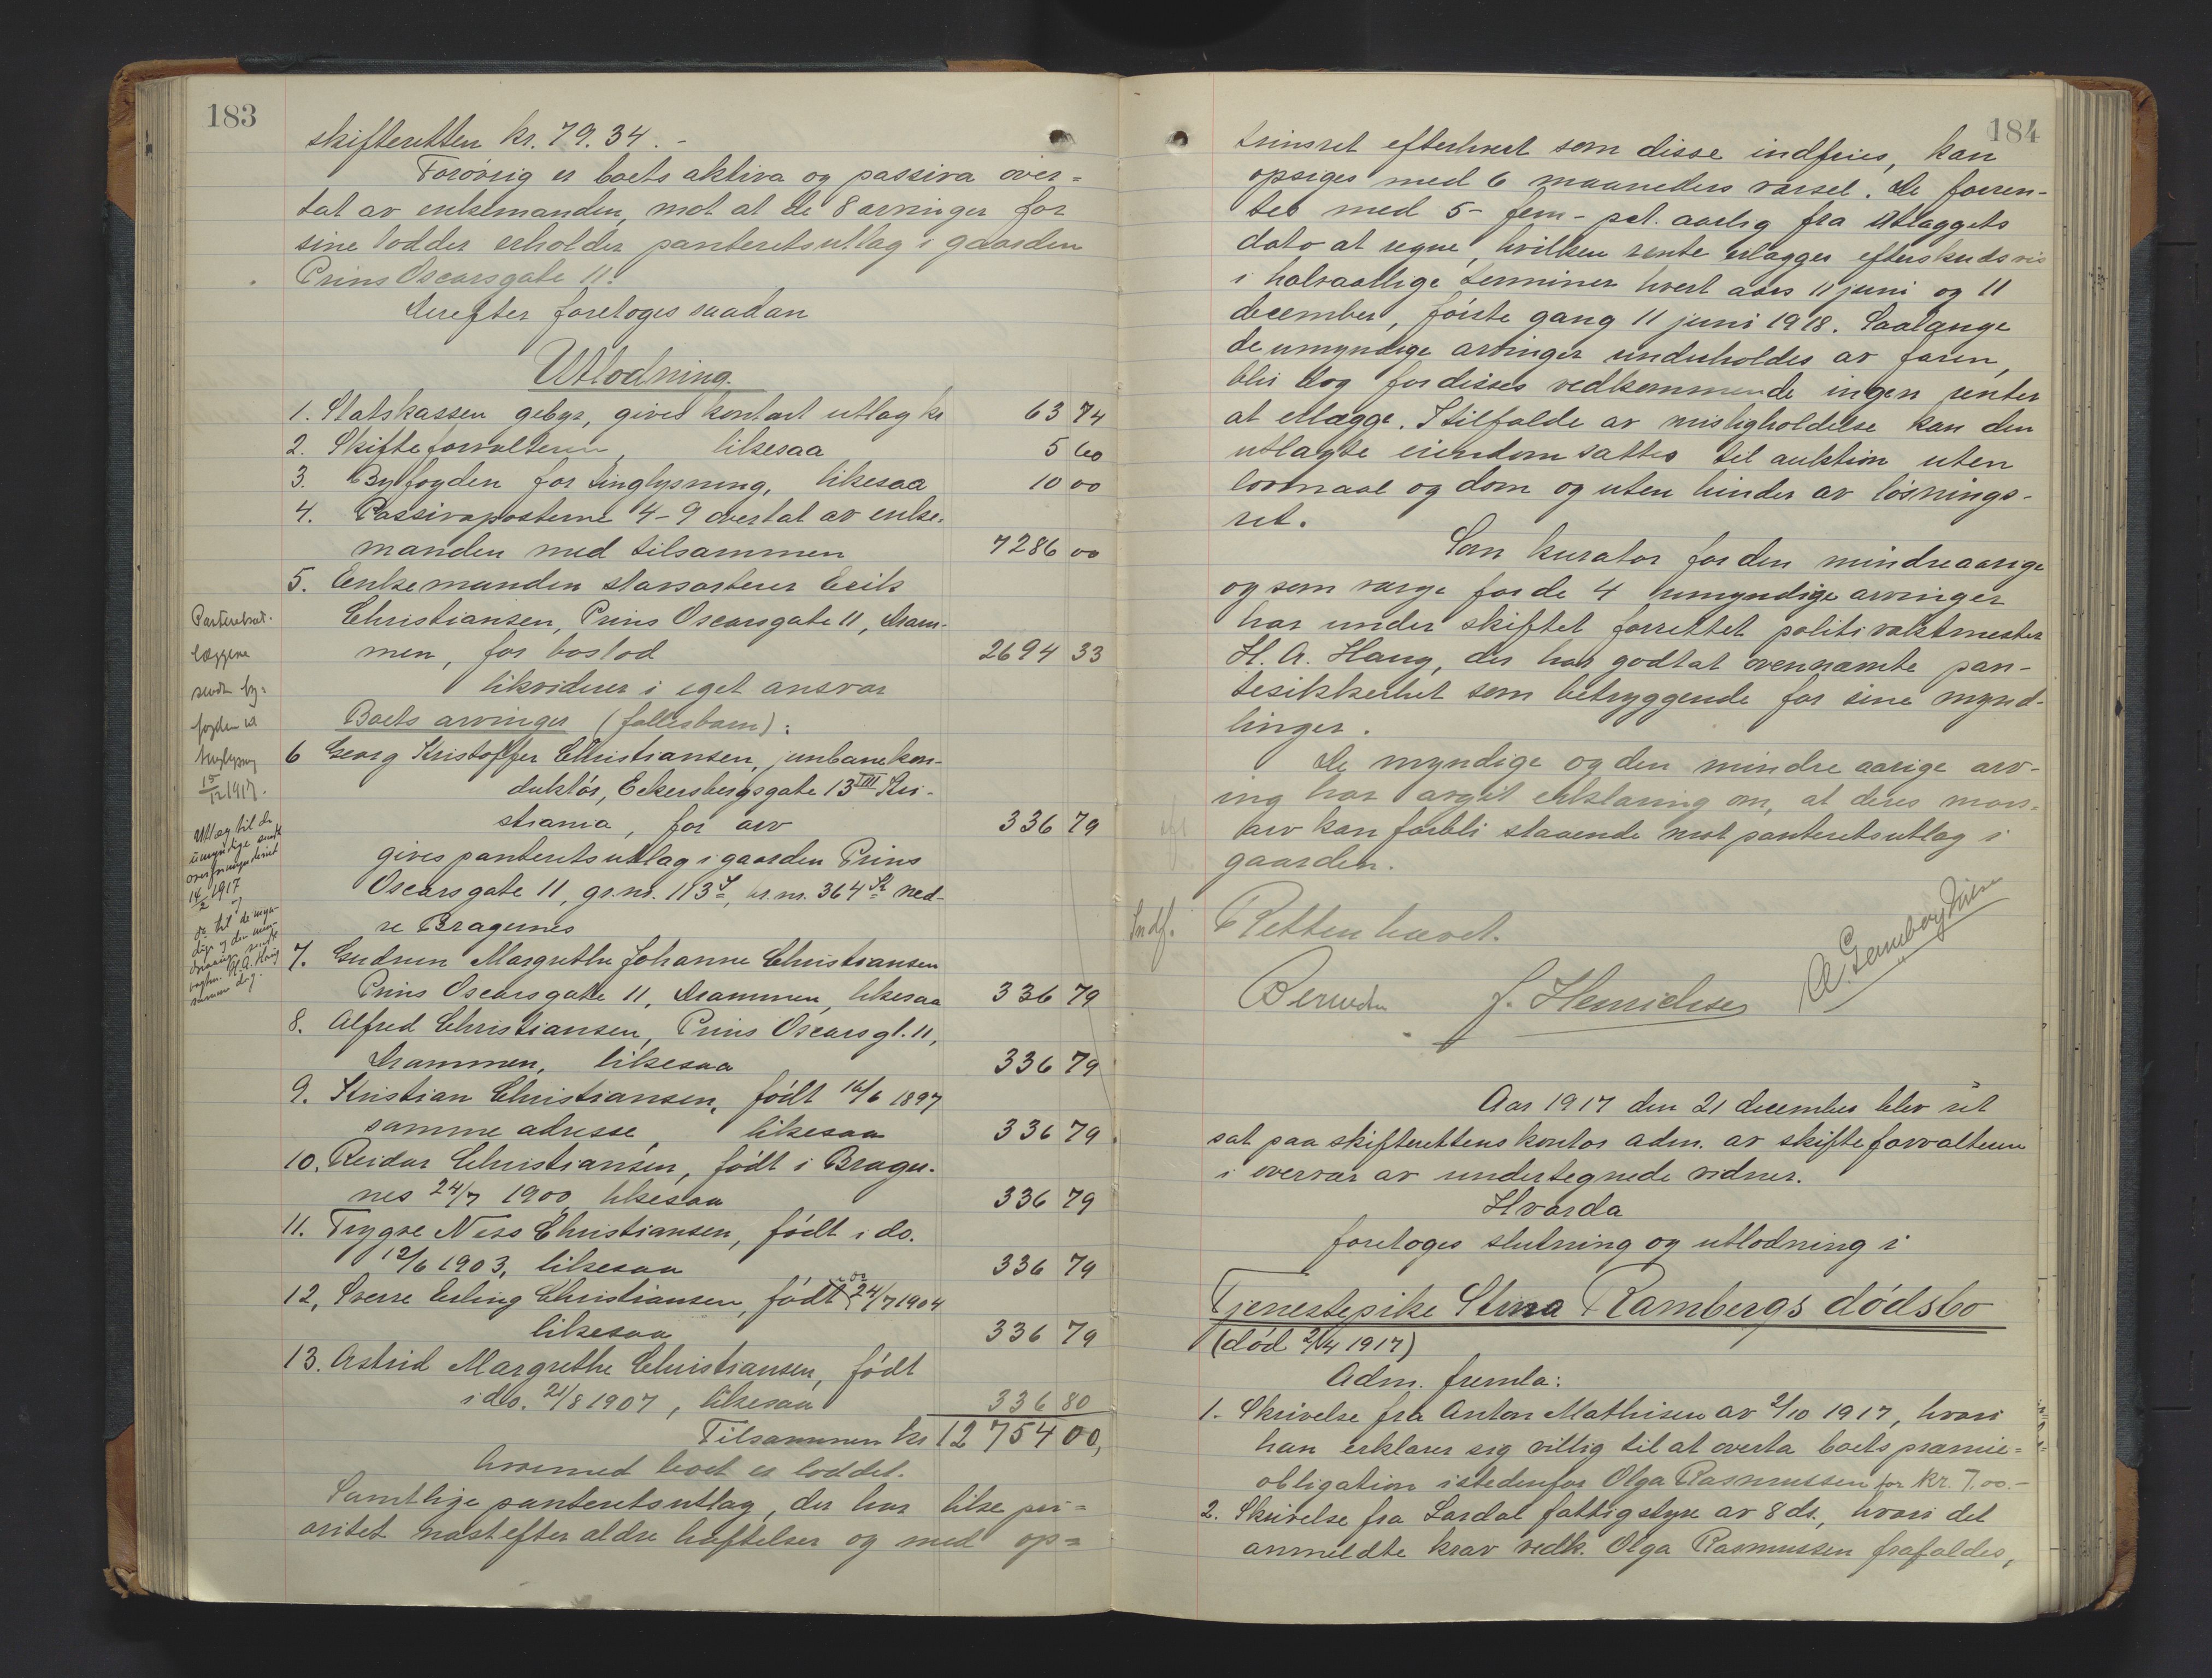 183
skifteretten kr. 79.34.-
Forøvrig er boets aktiva og passiva over=
tat av enkemanden, mot at de 8 arvinger for
sine lodder erholder panteretsutlag i gaarden
Prins Oscarsgate 11.
Derefter foretoges saadan
Utlodning.
1. Statskassen gebyr, gives kontant utlag kr 63 74
2. Skifteforvalteren, likesaa 5 60
3. Byfogden for tinglysning, likesaa 10 00
4. Passivaposterne 4-9 overtat av enke-
manden med tilsammen 7286 00
5. Enkemanden stavsorterer Erik
Christiansen, Prins Oscarsgate 11, Dram-
men, for boslod 2694 33
likviderer i eget ansvar
Boets arvinger (fællesbarn):
6 Georg Kristoffer Christiansen, jernbanekon-
duktør, Eckersbergsgate 13 III Kri-
stiania, for arv 336 79
gives panteretsutlag i gaarden Prins
Oscarsgate 11, gr.nr. 113, br.nr. 364 Ned-
re Bragernes
7. Gudrun Margrethe Johanne Christiansen
Prins Oscarsgate 11, Drammen, likesaa 336 79
8. Alfred Christiansen, Prins Oscarsgt. 11,
Drammen, likesaa 336 79
9. Kristian Christiansen, født 16/6 1897
samme adresse, likesaa 336 79
10. Reidar Christiansen, født i Brager-
nes 24/7 1900, likesaa 336 79
11. Trygve Ness Christiansen, født i do.
12/6 1903, likesaa 336 79
12, Sverre Erling Christiansen, født 24/7 1904
likesaa 336 79
13. Astrid Margrethe Christiansen, født
i do. 21/8 1907, likesaa 336 80
Tilsammen kr 12 754 00,
hvormed boet er loddet.
Samtlige panteretsutlag, der har like pri=
oritet næst efter ældre heftelser og med op=
Panteretsut-
læggene
sendt by-
fogden til
tinglysning
15/12 1917.
Utlæg til de
umyndige sendt
overformynderiet
14/2 1917
184
trinsret efterhvert som disse indfries, kan
opsiges med 6 maaneders varsel. De forren-
tes med 5- fem- pct. aarlig fra utlæggets
dato at regne, hvilken rente erlægges efterskudsvis
i halvaarlige terminer hvert aars 11 juni og 11
december, første gang 11 juni 1918. Saalænge
de umyndige arvinger underholdes av faren,
blir dog for disses vedkommende ingen renter
at erlægge. I tilfælde av misligholdelse kan den
utlagte eiendom sættes til auktion uten
lovmaal og dom og uten hinder av løsnings-
ret.
Som kurator for den mindreaarige
og som verge for de 4 umyndige arvinger
har under skiftet forrettet politivaktmester
H. A. Haug, der har godtat ovennævnte pan-
tesikkerhet som betryggende for sine mynd-
linger.
De myndige og den mindreaarige arv-
ing har avgit erklæring om, at deres mors-
arv kan forbli staaende mot panteretsutlag i
gaarden.
Indf. Retten hævet.
J. Henrichsen
Aar 1917 den 21 december blev ret
sat paa skifterettens kontor adm. av skifteforvalteren
i overvær av undertegnede vidner.
Hvorda
foretoges slutning og utlodning i
Tjenestepike Stina Rambergs dødsbo
(død 21/4 1917)
Adm. fremla:
1. Skrivelse fra Anton Mathisen av 2/10 1917, hvori
han erklærer sig villig til at overta boets præmie=
obligation istedenfor Olga Rasmussen for kr. 7.00.-
2. Skrivelse fra Lardal fattigstyre av 8 ds., hvori det
anmeldte krav vedk. Olga Rasmussen frafaldes,